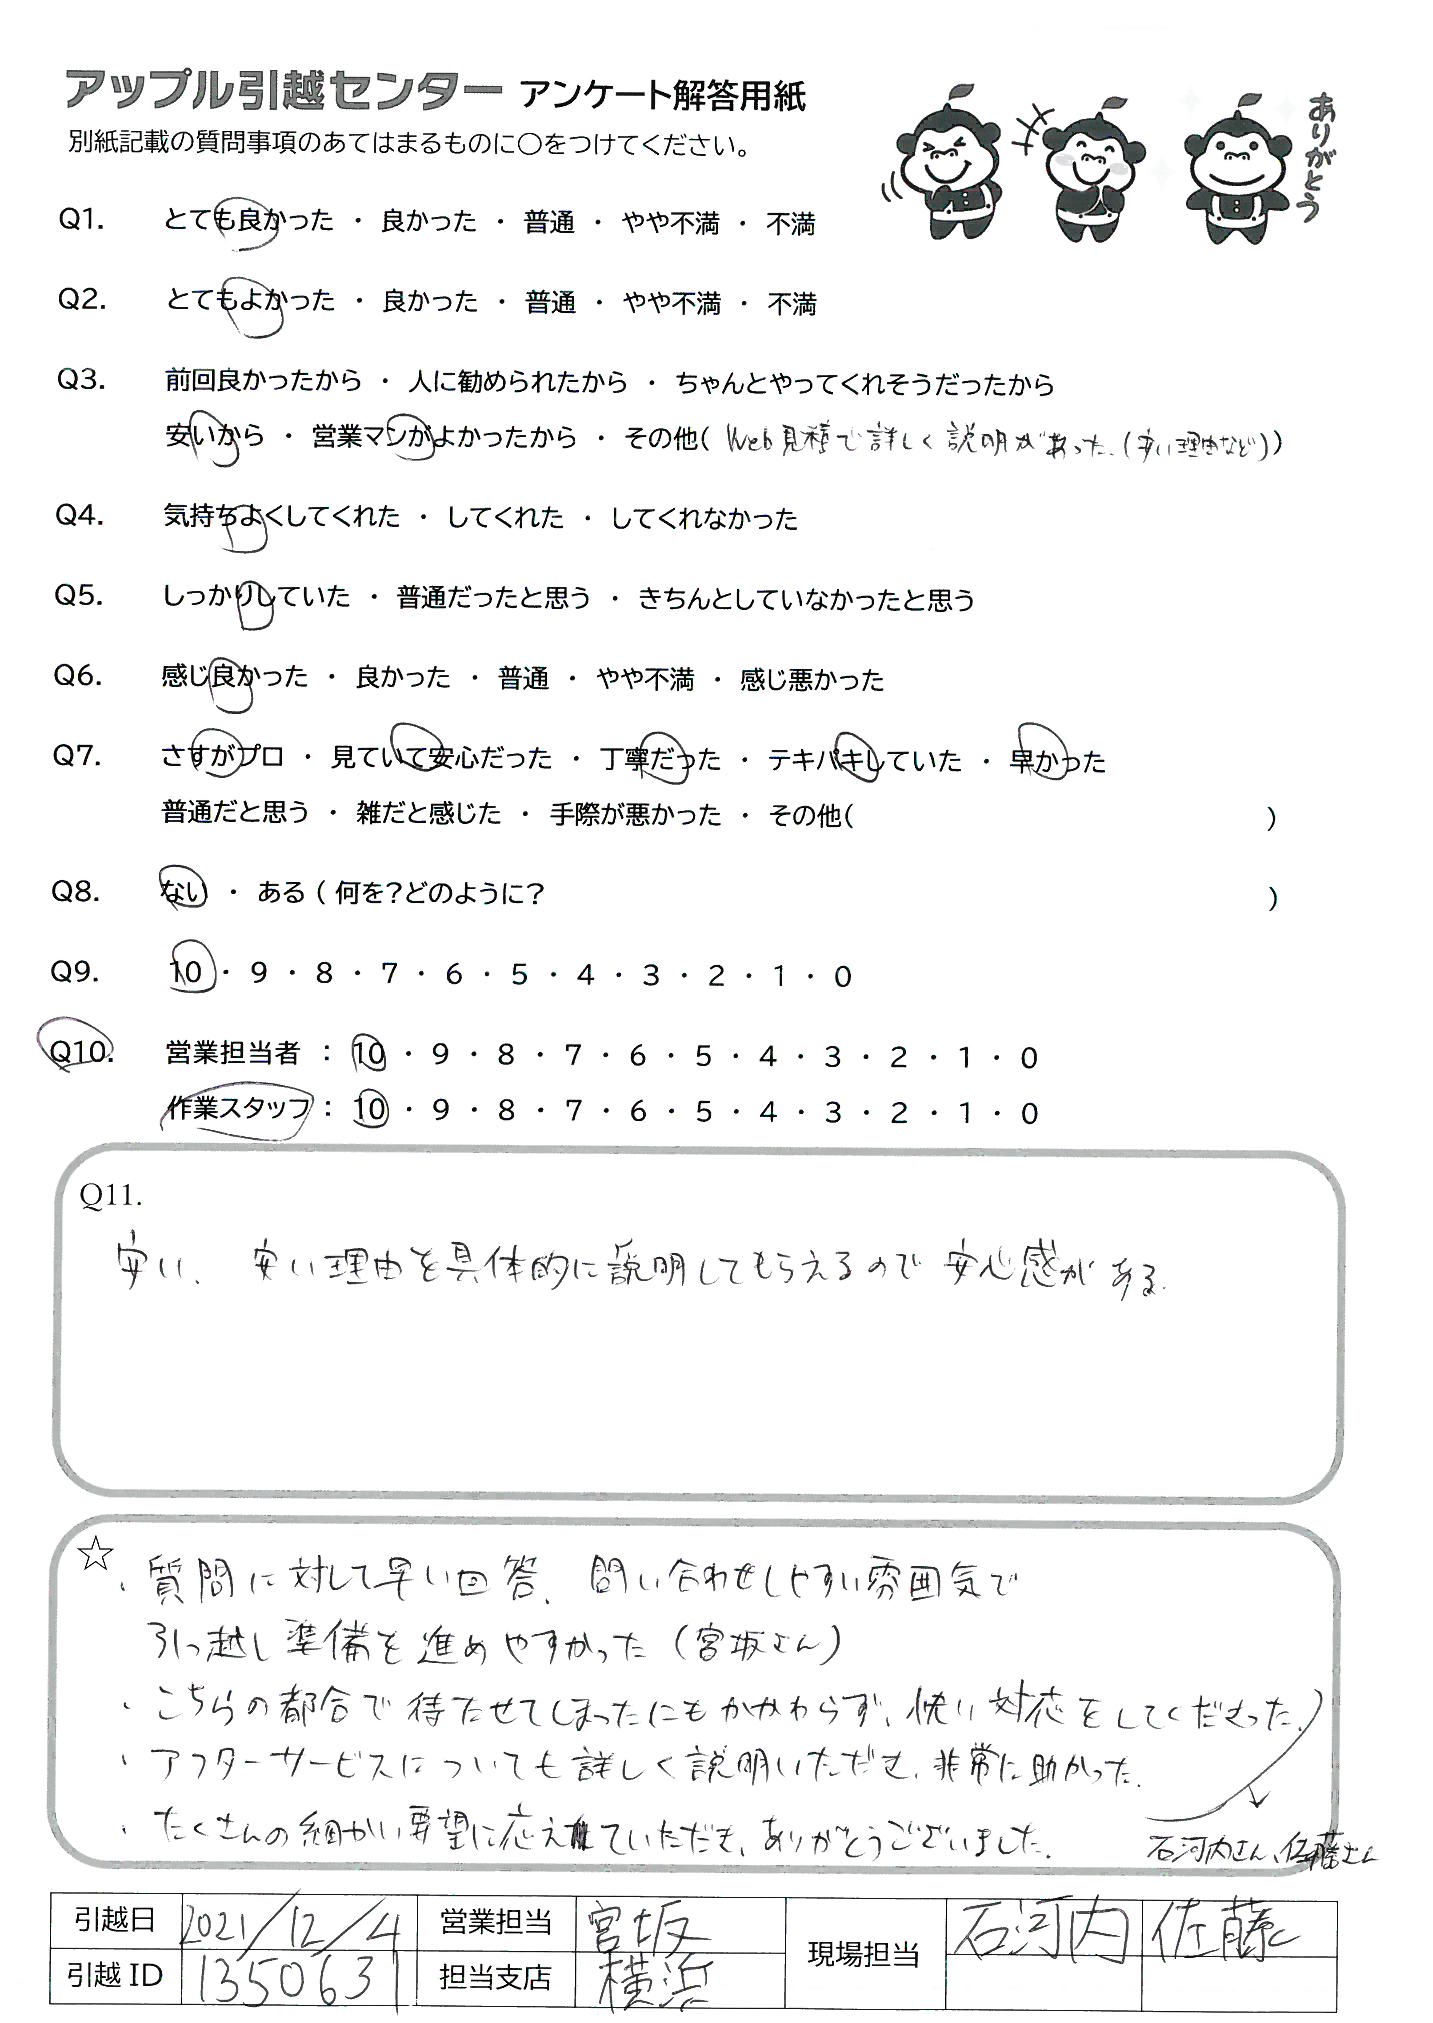 アップル引越センター アンケート解答用紙
別紙記載の質問事項のあてはまるものに〇をつけてください。
ありがとう
Q1. とても良かった ・ 良かった ・ 普通 ・ やや不満 ・ 不満
Q2. とてもよかった ・ 良かった ・ 普通 ・ やや不満 ・ 不満
Q3. 前回良かったから ・ 人に勧められたから ・ ちゃんとやってくれそうだったから
安いから ・ 営業マンがよかったから ・ その他( Web見積で詳しく説明があった.(安い理由など))
Q4. 気持ちよくしてくれた ・ してくれた ・ してくれなかった
Q5. しっかりしていた ・ 普通だったと思う ・ きちんとしていなかったと思う
Q6. 感じ良かった ・ 良かった ・ 普通 ・ やや不満 ・ 感じ悪かった
Q7. さすがプロ ・ 見ていて安心だった ・ 丁寧だった ・ テキパキしていた ・ 早かった
普通だと思う ・ 雑だと感じた ・ 手際が悪かった ・ その他( )
Q8. ない ・ ある ( 何を?どのように? )
Q9. 10 ・ 9 ・ 8 ・ 7 ・ 6 ・ 5 ・ 4 ・ 3 ・ 2 ・ 1 ・ 0
Q10. 営業担当者 : 10 ・ 9 ・ 8 ・ 7 ・ 6 ・ 5 ・ 4 ・ 3 ・ 2 ・ 1 ・ 0
作業スタッフ : 10 ・ 9 ・ 8 ・ 7 ・ 6 ・ 5 ・ 4 ・ 3 ・ 2 ・ 1 ・ 0
Q11.
安い、安い理由を具体的に説明してもらえるので安心感がある.
☆
・質問に対して早い回答、問い合わせしやすい雰囲気で
引っ越し準備を進めやすかった (宮坂さん)
・こちらの都合で待たせてしまったにもかかわらず、快い対応をしてくださった.
・アフターサービスについても詳しく説明いただき、非常に助かった.
・たくさんの細かい要望に応えていただき、ありがとうございました.
石河内さん、佐藤さん
引越日 2021/12/4 営業担当 宮坂 現場担当 石河内 佐藤
引越ID 1350631 担当支店 横浜